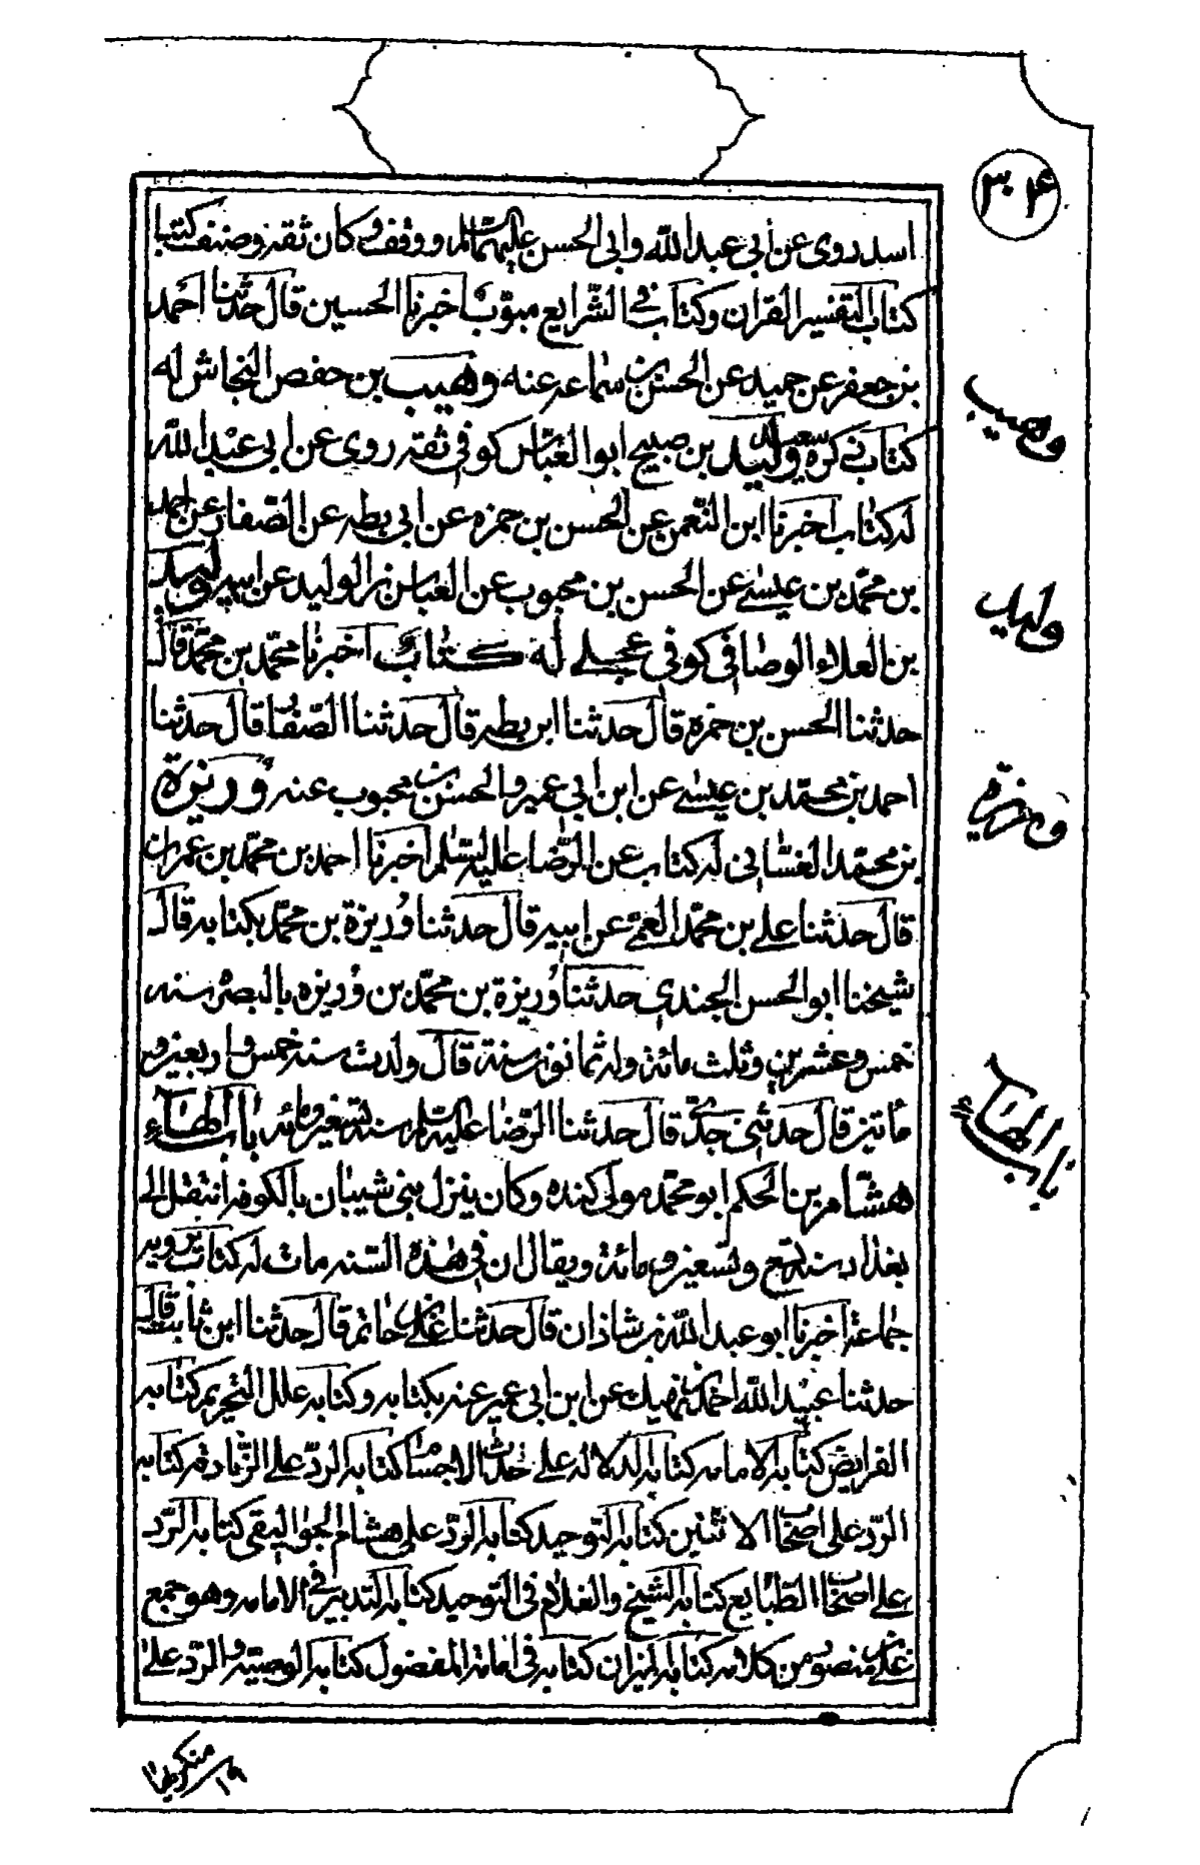 ٣٠۴
اسد روى عن أبي عبد الله وابى الحسن عليهما السلم ووقف وكان ثقة وصنف كتبا
كتاب التفسير القران وكتاب في الشرايع مبوّب اخبرنا الحسين قال حدثنا احمد
بن جعفر عن حميد عن الحسن بن سماعه عنه وهيب بن حفص النخاس له
كتاب ذكره سعد وليد بن صبيح ابو العباس كوفي ثقه روى عن ابى عبد الله
له كتاب اخبرنا ابن النعمن عن الحسن بن حمزه عن ابى بطه عن الصفار عن احمد
بن محمّد بن عيسى عن الحسن بن محبوب عن العباس بن الوليد عن ابيه وليد
بن العلاء الوصافى كوفى عجلى له كتاب اخبرنا محمد بن محمّد قال
حدثنا الحسن بن حمزه قال حدثنا ابن بطه قال حدثنا الصفار قال حدثنا
احمد بن محمد بن عيسى عن ابن أبى عمير والحسن بن محبوب عنه وُريزة
بن محمد الغسّانى له كتاب عن الرّضا عليه السّلم اخبرنا احمد بن محمّد بن عمران
قال حدثنا على بن محمّد العمى عن ابيه قال حدثنا وُريزة بن محمّد بكتابه قال
شيخنا ابو الحسن الجندى حدثنا وُريزة بن محمّد بن وُريزه بالبصرة سنه
خمس وعشرين وثلث مائة وله ثمانون سنة قال ولدت سنه خمس واربعين و
مأتين قال حدثنى جدّى قال حدثنا الرّضا عليه السلم سنه تسعين ومائه باب الهاء
هشام بن الحكم ابو محمّد مولى كنده وكان ينزل بنى شيبان بالكوفه انتقل الى
بغداد سنه تسع وتسعين ومائة ويقال ان فى هذه السنه مات له كتاب يرويه
جماعة اخبرنا ابو عبد الله بن شاذان قال حدثنا على بن حاتم قال حدثنا ابن ثابت قال
حدثنا عبيد الله احمد بن نهيك عن ابن ابى عمير عنه بكتابه وكتابه علل التحريم كتابه
الفرايض كتابه الامامه كتابه الدلاله على حدث الاجسام كتابه الردّ على الزنادقه كتابه
الردّ على اصحاب الاثنين كتابه التوحيد كتابه الردّ على هشام الجواليقى كتابه الرّد
على اصحاب الطبايع كتابه الشيخ والغلام فى التوحيد كتابه التدبير فى الامامه وهو جمع
على بن منصور من كلامه كتابه الميزان كتابه فى امامة المفضول كتابه الوصيّة والرّد على
وهيب
وليد
وريزه
باب الهاء